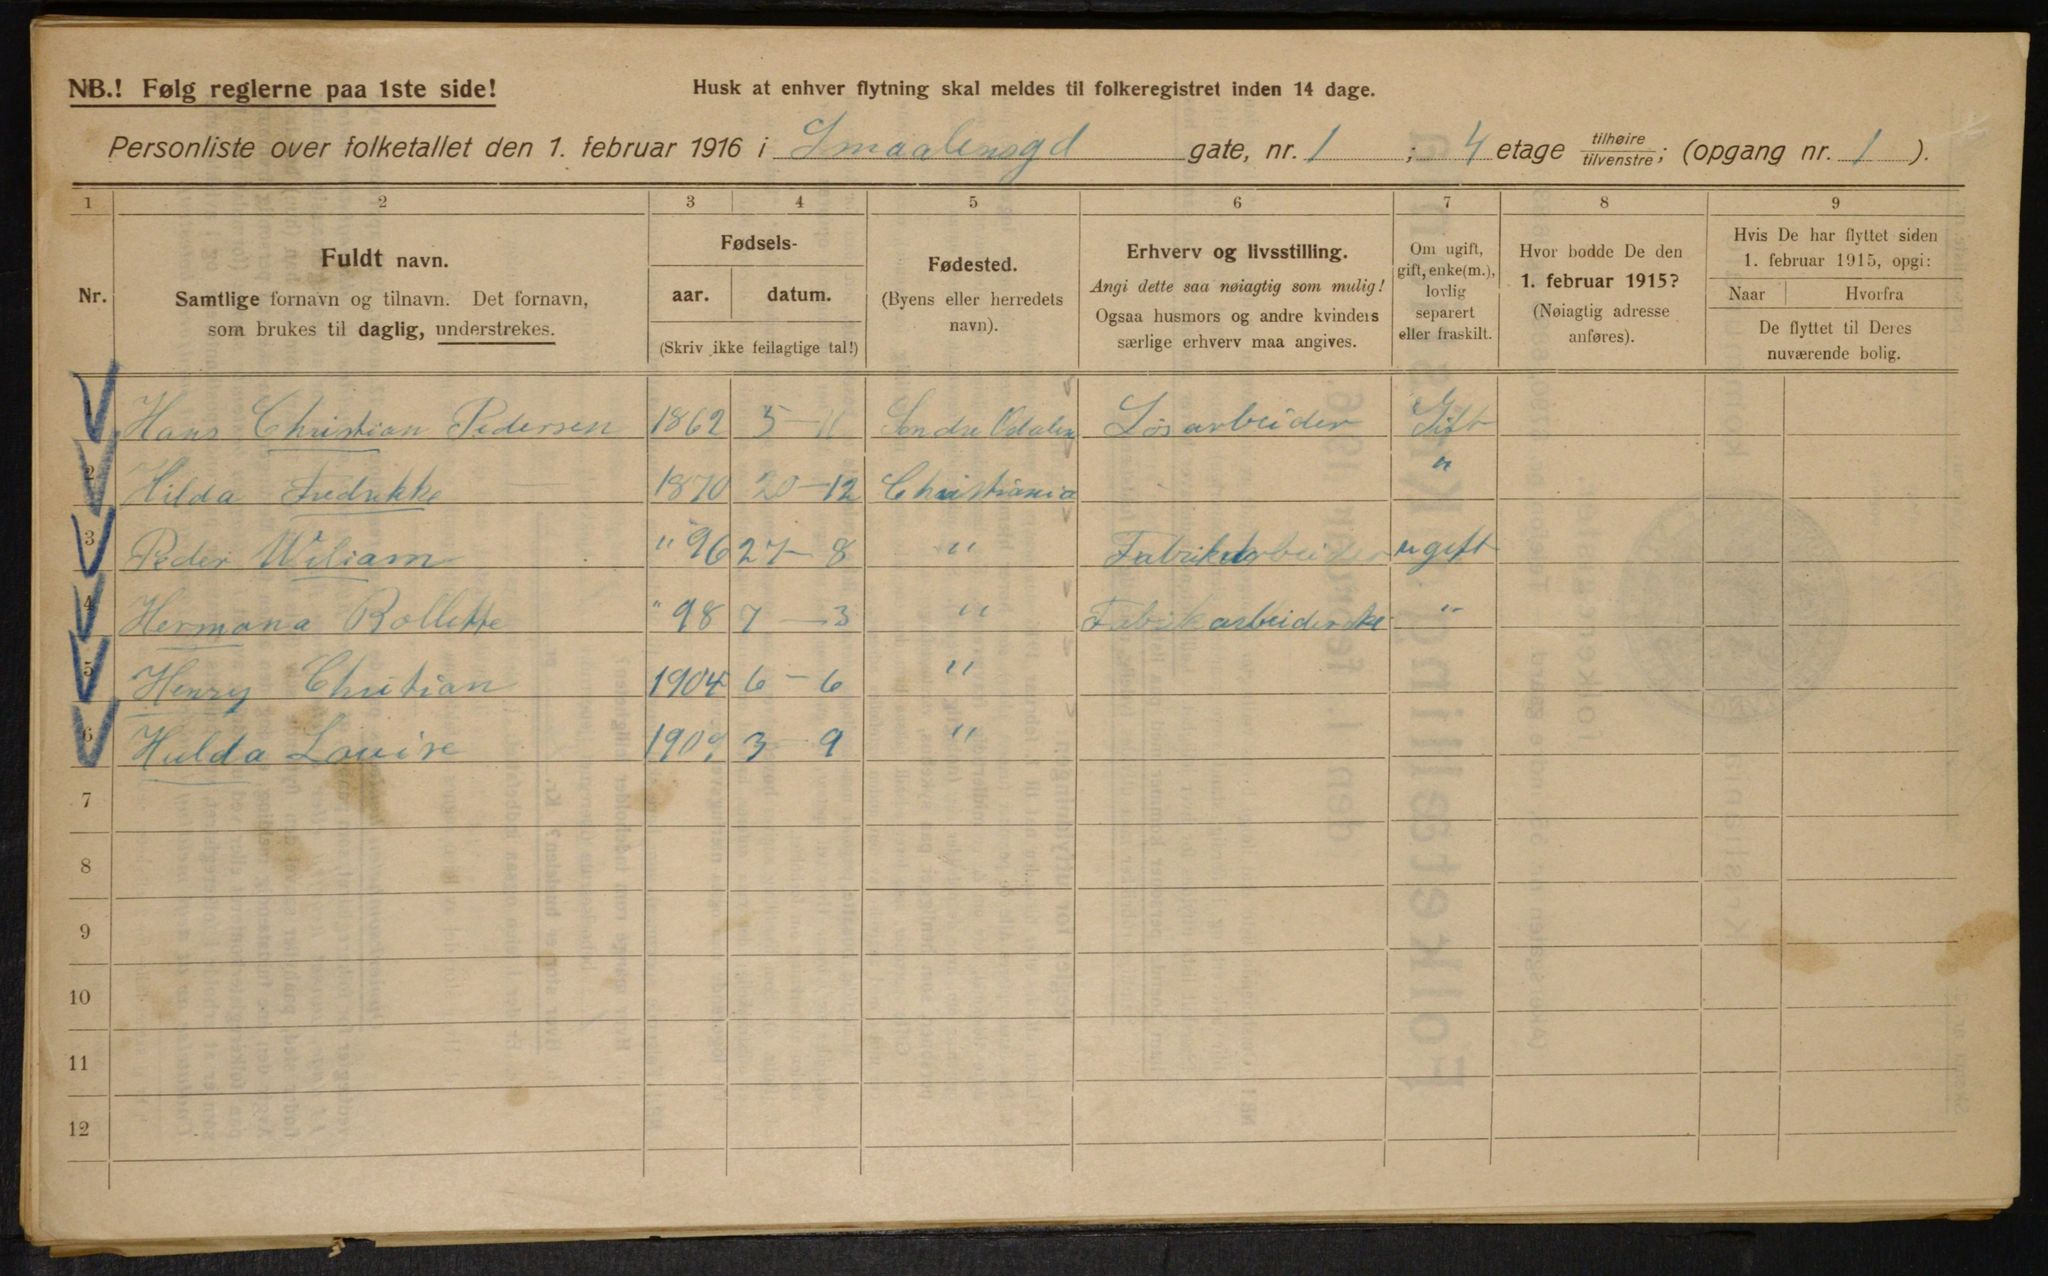 NB.! Følg reglerne paa 1ste side!
Husk at enhver flytning skal meldes til folkeregistret inden 14 dage.
Personliste over folketallet den 1. februar 1916 i Smaalensgd gate, nr. 1 ; 4 etage tilhøire tilvenstre; (opgang nr. 1 ).
1 2 3 4 5 6 7 8 9
Nr.
Fuldt navn.
Samtlige fornavn og tilnavn. Det fornavn,
som brukes til daglig, understrekes.
Fødsels-
aar. datum.
(Skriv ikke feilagtige tal!)
Fødested.
(Byens eller herredets
navn).
Erhverv og livsstilling.
Angi dette saa nøiagtig som mulig!
Ogsaa husmors og andre kvinders
særlige erhverv maa angives.
Om ugift,
gift, enke(m.),
lovlig
separert
eller fraskilt.
Hvor bodde De den
1. februar 1915?
(Nøiagtig adresse
anføres).
Hvis De har flyttet siden
1. februar 1915, opgi:
Naar Hvorfra
De flyttet til Deres
nuværende bolig.
Hans Christian Pedersen 1862 5 – 11 Søndre Odalen Løsarbeider Gift
2 Hilda Fredrikke 1870 20 – 12 Christiania "
3 Peder Wiliam " 96 27 – 8 " Fabrikarbeider ugift
4 Hermana Bollette " 98 7 – 3 " Fabrikarbeiderske "
5 Henry Chritian 1904 6 – 6 "
6 Hulda Louise 1909 3 9 "
7
8
9
10
11
12